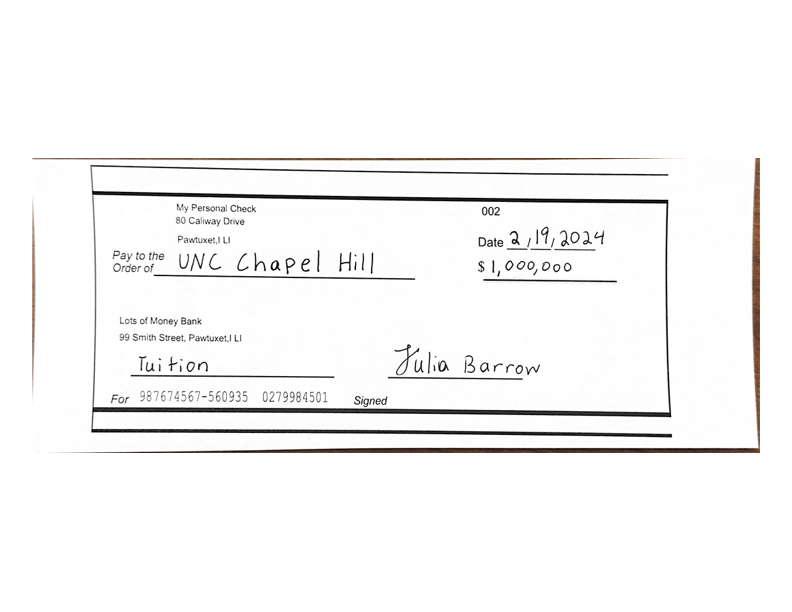 My Personal Check
80 Caliway Drive
002
Pawtuxet,I LI
Date 2/19/2024
Pay to the
Order of UNC Chapel Hill
$ 1,000,000
Lots of Money Bank
99 Smith Street, Pawtuxet,I LI
Tuition
Julia Barrow
For 987674567-560935 0279984501 Signed